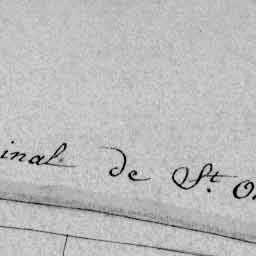 inal de St. O